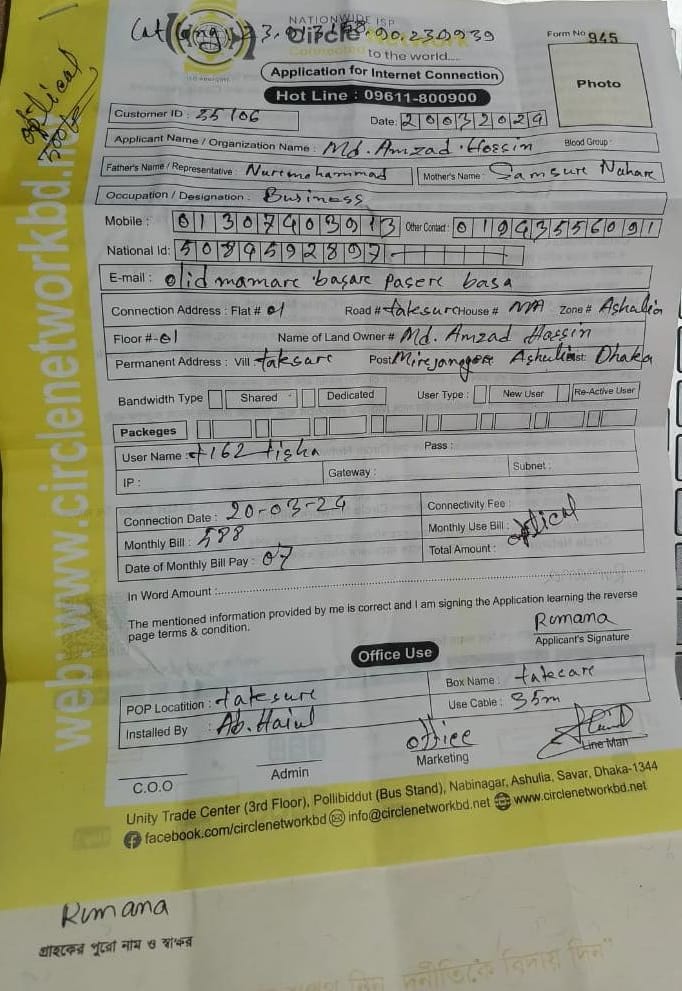 Cat Long 23.9
NATIONWIDE ISP
90.230939
Circle Network
Connected to the world....
Form No 945
Application for Internet Connection
Photo
Hot Line : 09611-800900
optical
Customer ID : 35106
Date: 20032024
Applicant Name / Organization Name : Md. Amzad Hossin Blood Group:
Father's Name / Representative : Nure mohammad Mother's Name : Samsure Nahare
Occupation / Designation : Business
Mobile : 01307403913 Other Contact : 01943556091
National Id: 5089592897
E-mail : olid mamare basare pasere basa
Connection Address : Flat # 01 Road # taksur House # N/A Zone # Ashulia
Floor #-01 Name of Land Owner # Md. Amzad Hassin
Permanent Address : Vill : taksure Post Mirejanagore Ashulia Dist: Dhaka
Bandwidth Type Shared Dedicated User Type : New User Re-Active User
Packeges
User Name : t162 tisha Pass :
IP : Gateway : Subnet :
Connection Date : 20-03-24 Connectivity Fee :
Monthly Bill : 500 Monthly Use Bill : optical
Date of Monthly Bill Pay : 07 Total Amount :
In Word Amount :
The mentioned information provided by me is correct and I am signing the Application learning the reverse
page terms & condition.
Rumana
Applicant's Signature
Office Use
POP Locatition : takesure Box Name : takecare
Installed By : Ab. Haiul Use Cable : 35m
office
C.O.O Admin Marketing Line Man
Unity Trade Center (3rd Floor), Pollibiddut (Bus Stand), Nabinagar, Ashulia, Savar, Dhaka-1344
facebook.com/circlenetworkbd info@circlenetworkbd.net www.circlenetworkbd.net
web: www.circlenetworkbd.net
Rumana
গ্রাহকের পুরো নাম ও স্বাক্ষর
দুর্নীতিকে বিদায় দিন"